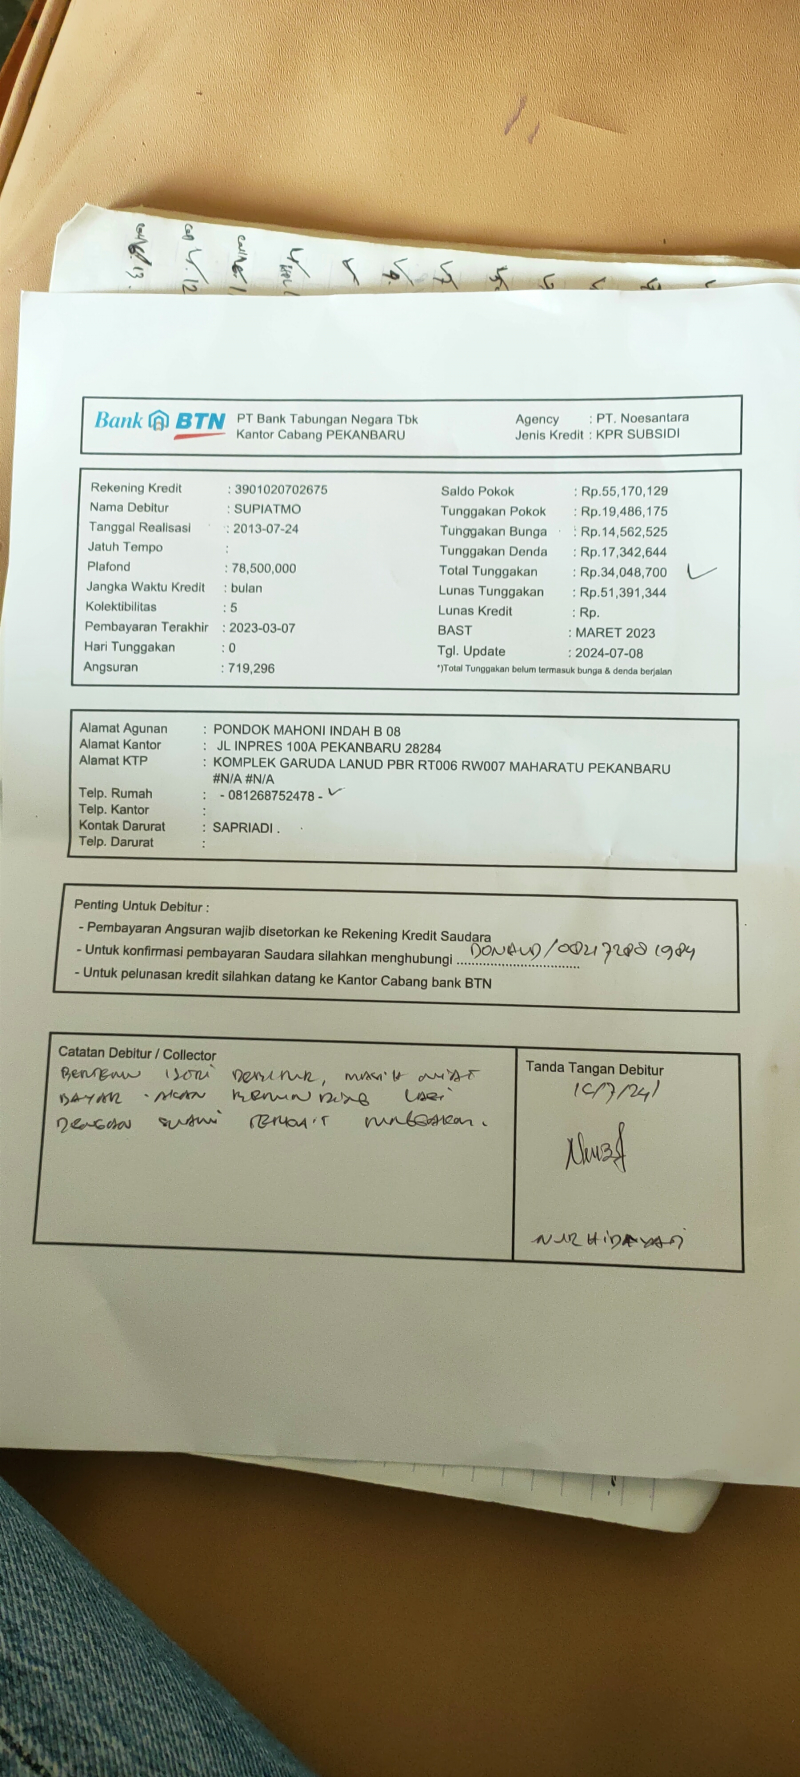 Bank BTN PT Bank Tabungan Negara Tbk Agency : PT. Noesantara
Kantor Cabang PEKANBARU Jenis Kredit : KPR SUBSIDI
Rekening Kredit : 3901020702675 Saldo Pokok : Rp.55,170,129
Nama Debitur : SUPIATMO Tunggakan Pokok : Rp.19,486,175
Tanggal Realisasi : 2013-07-24 Tunggakan Bunga : Rp.14,562,525
Jatuh Tempo : Tunggakan Denda : Rp.17,342,644
Plafond : 78,500,000 Total Tunggakan : Rp.34,048,700
Jangka Waktu Kredit : bulan Lunas Tunggakan : Rp.51,391,344
Kolektibilitas : 5 Lunas Kredit : Rp.
Pembayaran Terakhir : 2023-03-07 BAST : MARET 2023
Hari Tunggakan : 0 Tgl. Update : 2024-07-08
Angsuran : 719,296 *)Total Tunggakan belum termasuk bunga & denda berjalan
Alamat Agunan : PONDOK MAHONI INDAH B 08
Alamat Kantor : JL INPRES 100A PEKANBARU 28284
Alamat KTP : KOMPLEK GARUDA LANUD PBR RT006 RW007 MAHARATU PEKANBARU
#N/A #N/A
Telp. Rumah : - 081268752478 -
Telp. Kantor :
Kontak Darurat : SAPRIADI .
Telp. Darurat :
Penting Untuk Debitur :
- Pembayaran Angsuran wajib disetorkan ke Rekening Kredit Saudara
- Untuk konfirmasi pembayaran Saudara silahkan menghubungi DONALD/082172881984
- Untuk pelunasan kredit silahkan datang ke Kantor Cabang bank BTN
Catatan Debitur / Collector
BERTEMU ISTRI DEBITUR, MASIH NIAT
BAYAR. AKAN BERUNDING LAGI
DENGAN SUAMI TERKAIT TUNGGAKAN.
Tanda Tangan Debitur
NURHIDAYATI